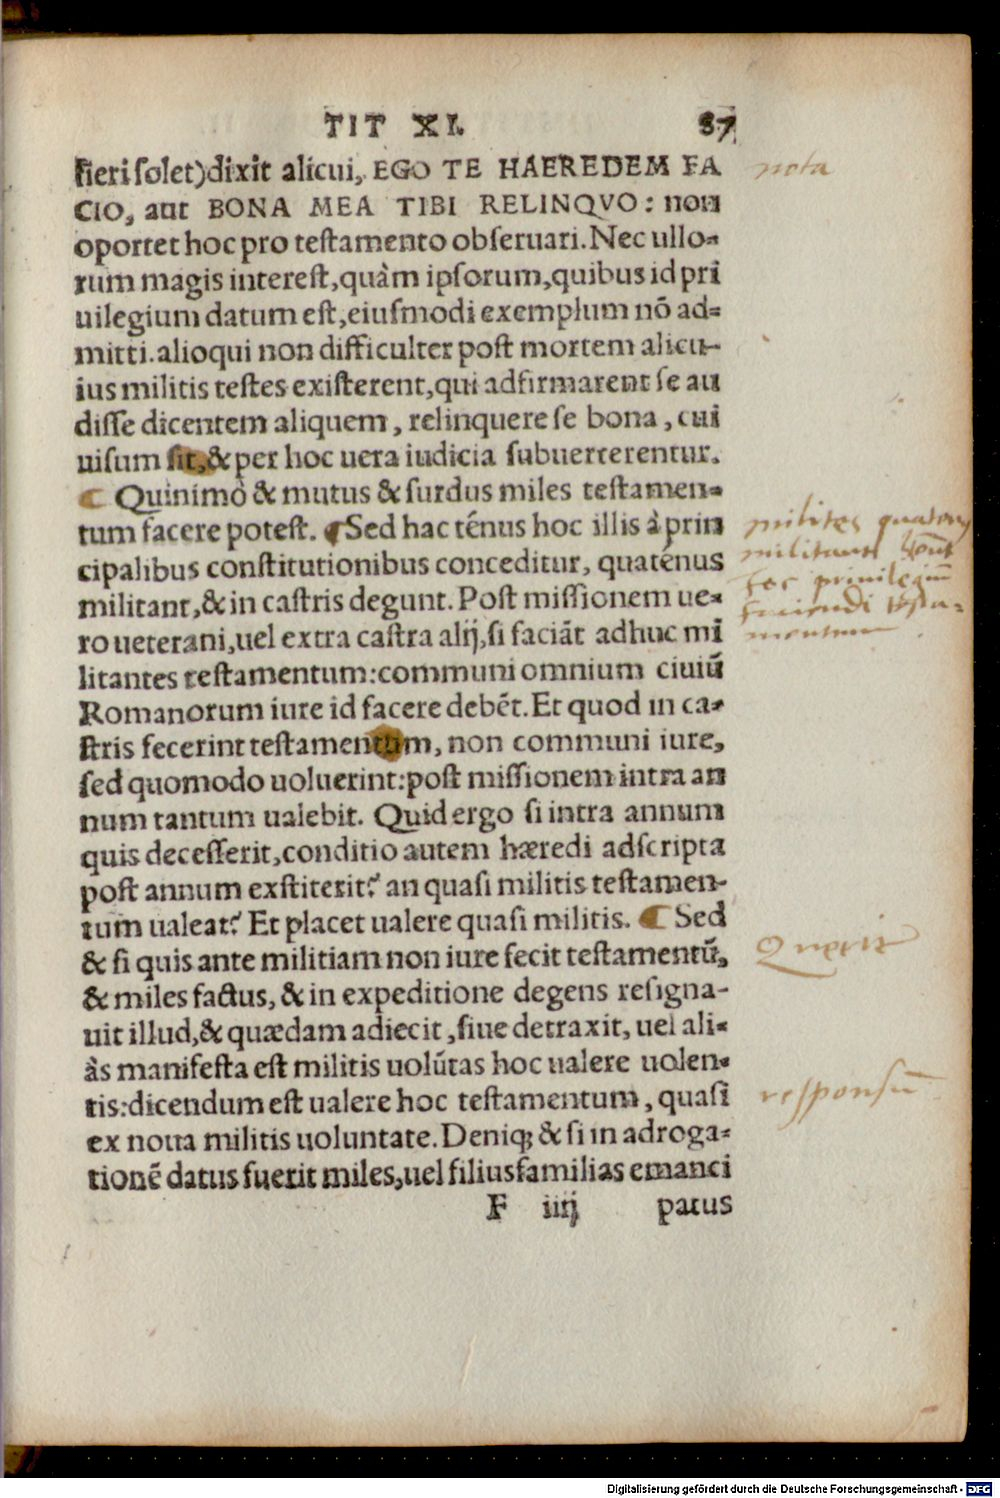 TIT XI. 87
fieri solet) dixit alicui, EGO TE HAEREDEM FA
CIO, aut BONA MEA TIBI RELINQVO: non
oportet hoc pro testamento obseruari. Nec ullo-
rum magis interest, quàm ipsorum, quibus id pri
uilegium datum est, eiusmodi exemplum nō ad-
mitti. alioqui non difficulter post mortem alicu-
ius militis testes existerent, qui adfirmarent se au
disse dicentem aliquem, relinquere se bona, cui
uisum sit, & per hoc uera iudicia subuerterentur.
¶ Quinimò & mutus & surdus miles testamen-
tum facere potest. ¶ Sed hac ténus hoc illis à prin
cipalibus constitutionibus conceditur, quaténus
militant, & in castris degunt. Post missionem ue-
ro ueterani, uel extra castra alij, si faciāt adhuc mi
litantes testamentum: communi omnium ciuiū
Romanorum iure id facere debēt. Et quod in ca-
stris fecerint testamentum, non communi iure,
sed quomodo uoluerint: post missionem intra an
num tantum ualebit. Quid ergo si intra annum
quis decesserit, conditio autem hæredi adscripta
post annum exstiterit? an quasi militis testamen-
tum ualeat? Et placet ualere quasi militis. ¶ Sed
& si quis ante militiam non iure fecit testamentū,
& miles factus, & in expeditione degens resigna-
uit illud, & quædam adiecit, siue detraxit, uel ali-
às manifesta est militis uolūtas hoc ualere uolen-
tis: dicendum est ualere hoc testamentum, quasi
ex noua militis uoluntate. Deniq; & si in adroga-
tionē datus fuerit miles, uel filiusfamilias emanci
F iiij patus
nota
milites quaten
militant
hoc priuilegiū
faciendi testa-
mentum
Querit
responsū
Digitalisierung gefördert durch die Deutsche Forschungsgemeinschaft - DFG